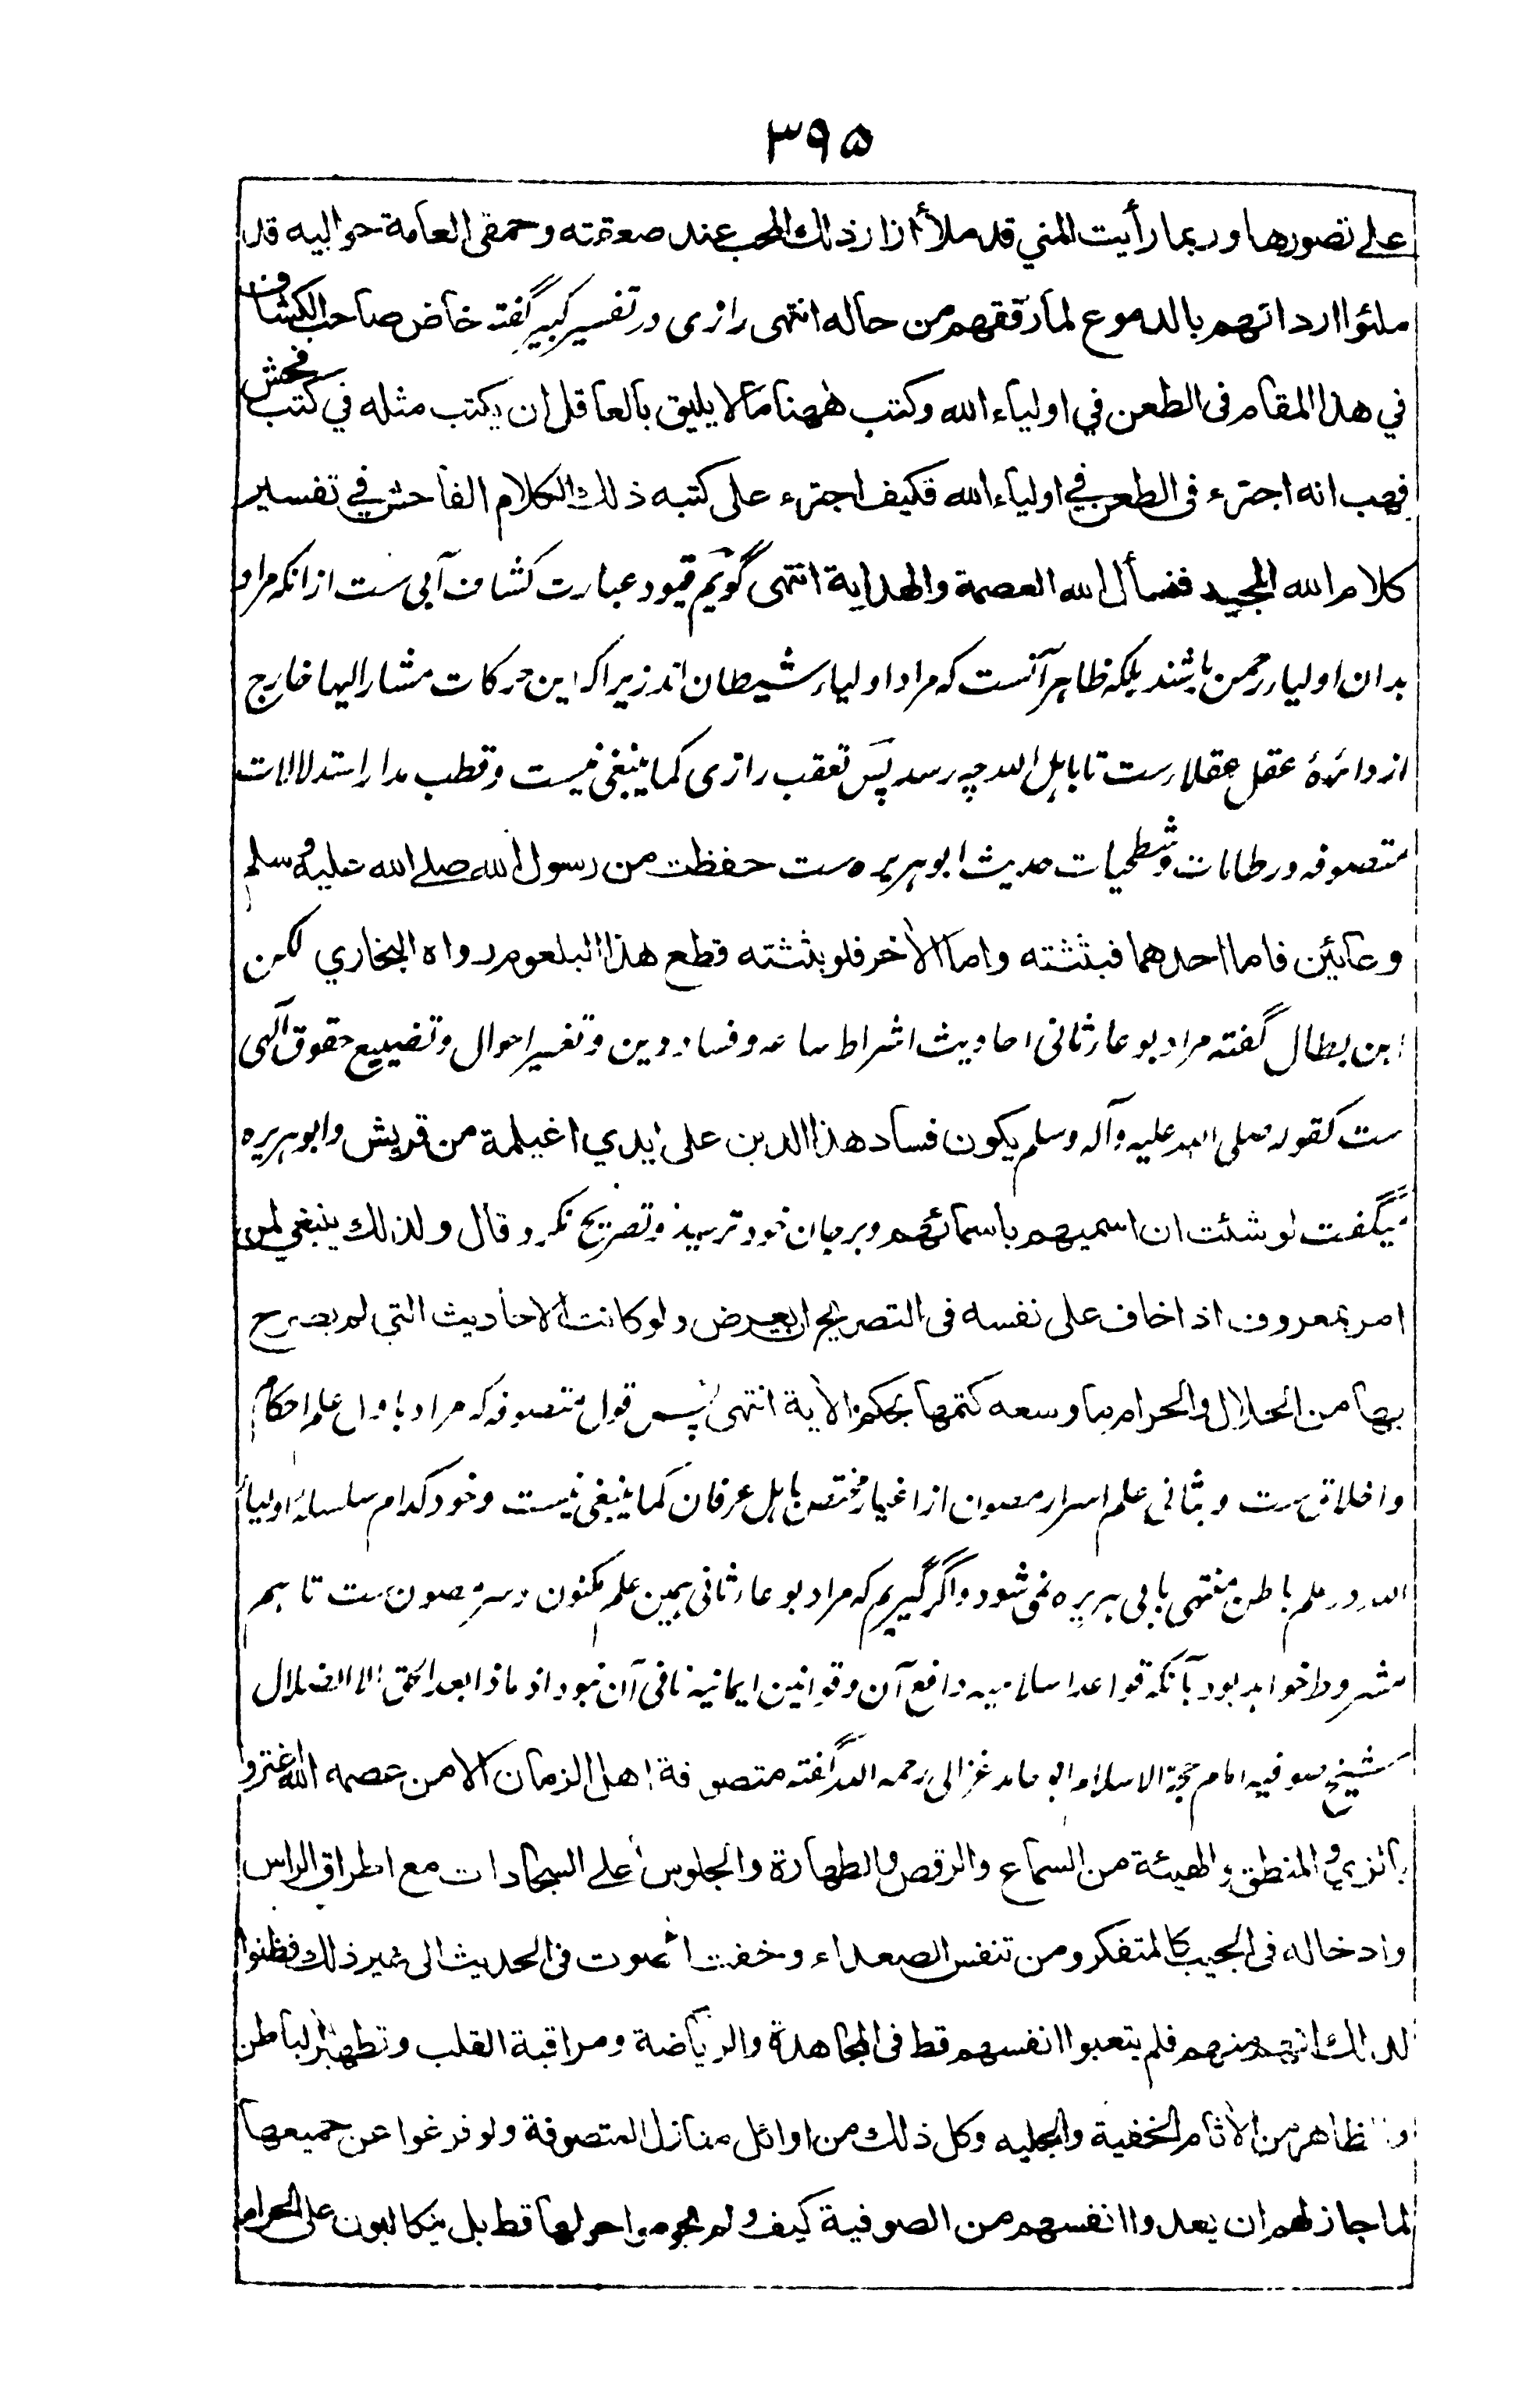 ۳۹۵
علے تصورها وربما رأيت المني قد ملأ ازار ذلك المحب عند صعقته وحمقى العامة حواليه قد
ملئوا اردانهم بالدموع لما رققهم من حاله انتهى رازی در تفسير کبیر گفته خاض صاحب الکشاف
في هذا المقام فى الطعن في اولياء الله وكتب ههنا ما لا يليق بالعاقل ان يكتب مثله في كتب فحش
فهب انه اجترء فى الطعن في اولياء الله فكيف اجترء على كتبه ذلك الكلام الفاحش في تفسير
كلام الله المجيد فنسأل الله العصمة والهداية انتهى گویم قیود عبارت کشاف آبی ست ازانکه مراد
بدان اولیاء رحمن باشند بلکه ظاهر آنست که مراد اولیاء شیطان اند زیرا که این حرکات مشار الیها خارج
از دائرۀ عقل عقلا رست تا باہل اللہ چہ رسد پس تعقب رازی کما ینبغی نیست و قطب مدار استدلالات
متصوفہ در طامات و شطحیات حدیث ابوہریرہ ست حفظت من رسول الله صلے الله علیه وسلم
وعائين فاما احدهما فبثثته واما الأخر فلو بثثته قطع هذا البلعوم رواه البخاري لکن
ابن بطال گفته مراد بوعاء ثانی احادیث اشراط ساعہ و فساد دین و تغییر احوال و تضییع حقوق آلہی
ست كقوله صلی الله علیه وآله وسلم يكون فساد هذا الدين على ايدي اغيلمة من قريش وابوہریرہ
میگفت لو شئت ان اسميهم باسمائهم وبرجان خود ترسید و تصریح نکرد قال ولذلك ينبغي لمن
امر بمعروف اذا خاف على نفسه فى التصريح ان يعرض ولو كانت الاحاديث التي لم يصرح
بها من الحلال والحرام ما وسعه كتمها بحكم الأية انتهى پس قول متصوفہ کہ مراد باول علم احکام
واخلاق ست و بثانی علم اسرار مصون از اغیار مختص باہل عرفان کما ینبغی نیست وخود کدام سلسلۂ اولیاء
اللہ در علم باطن منتهی بابی ہریرہ نمی شود واگر گیریم کہ مراد بوعاء ثانی ہمین علم مکنون وسر مصون ست تاہم
مشروط خواہد بود بآنکہ قواعد اسلامیہ دافع آن وقوانین ایمانیہ نافی آن نبود اذ ماذا بعد الحق الا الضلال
شیخ صوفیہ امام حجۃ الاسلام ابو حامد غزالی رحمہ اللہ گفتہ متصوفة اهل الزمان الا من عصمه الله اغتروا
بالزي والمنطق والهيئة من السماع والرقص والطهارة والجلوس على السجادات مع اطراق الراس
وادخاله فى الجيب كالمتفكر ومن تنفس الصعداء وخفت الصوت فى الحديث الى غير ذلك فظنوا
لذلك انهم منهم فلم يتعبوا انفسهم قط فى المجاهدة والرياضة ومراقبة القلب وتطهير الباطن
والظاهر من الأثام الخفية والجليه وكل ذلك من اوائل منازل المتصوفة ولو فرغوا عن جميعها
لما جاز لهم ان يعدوا انفسهم من الصوفية كيف ولم يحوموا حولها قط بل يتكالبون على الحرام